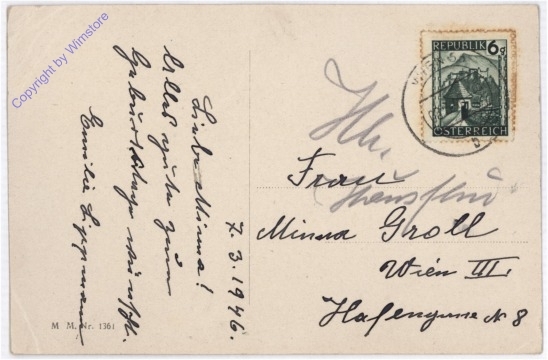 Copyright by Wimstore
7. 3. 1946.
Liebe Minna!
Alles gute zum
Geburtstage wünscht
Emilie Lippmann
M M. Nr. 1361
REPUBLIK 6g
ÖSTERREICH
WIEN
Frau
Minna Groll
Wien III.
Hafengasse № 8